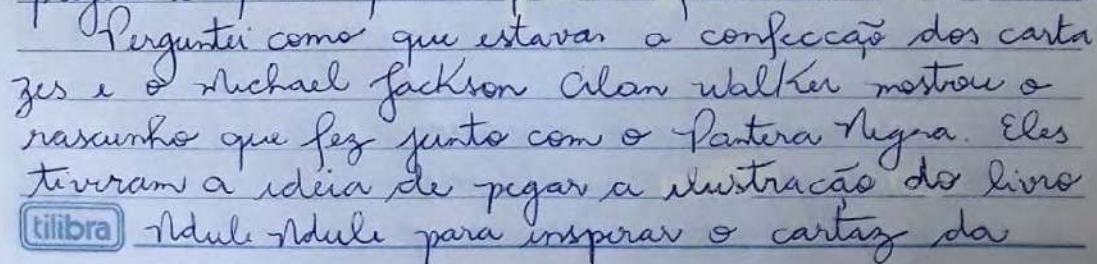 Perguntei como que estavan a confecção dos carta
zes e o Michael Jackson Alan Walker mostrou o
rascunho que fez junto com o Pantera Negra. Eles
tiveram a idéia de pegar a ilustração do livro
tilibra Ndule Ndule para inspirar o cartaz da